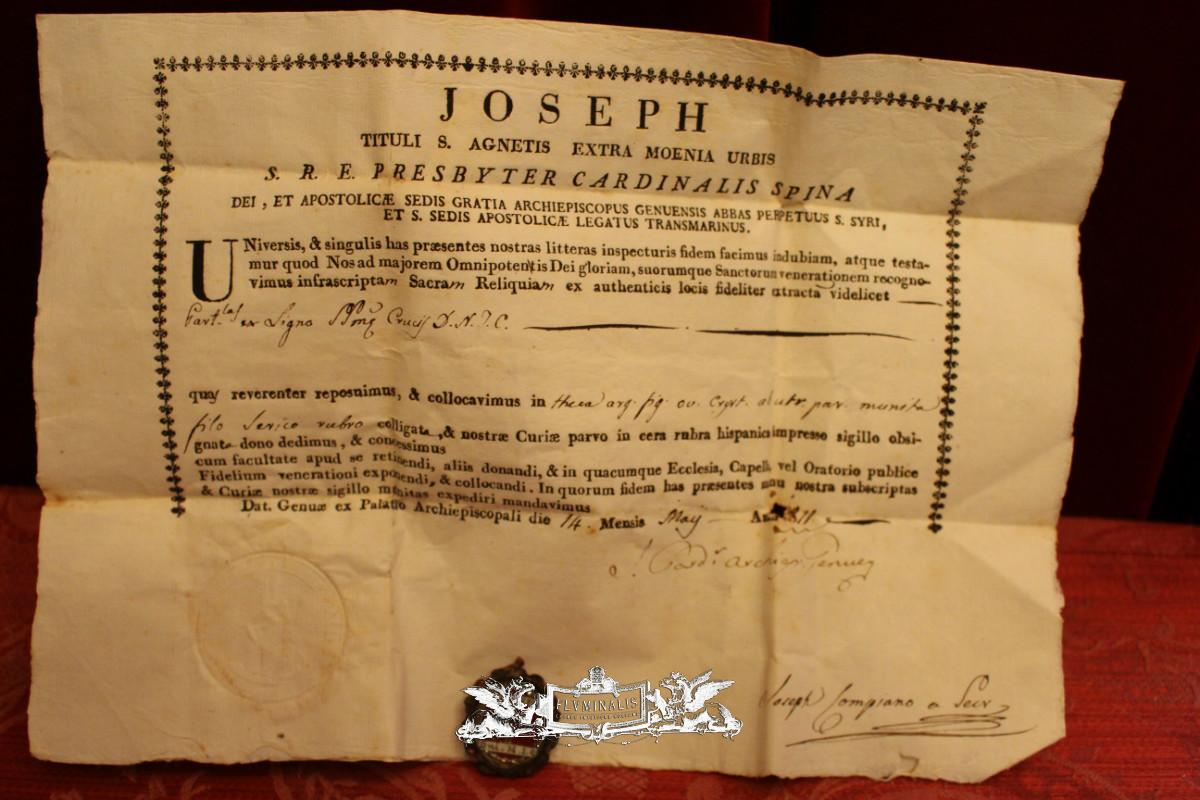 JOSEPH
TITULI S. AGNETIS EXTRA MOENIA URBIS
S. R. E. PRESBYTER CARDINALIS SPINA
DEI, ET APOSTOLICÆ SEDIS GRATIA ARCHIEPISCOPUS GENUENSIS ABBAS PERPETUUS S. SYRI,
ET S. SEDIS APOSTOLICÆ LEGATUS TRANSMARINUS.
UNiversis, & singulis has præsentes nostras litteras inspecturis fidem facimus indubiam, atque testa-
mur quod Nos ad majorem Omnipotentis Dei gloriam, suorumque Sanctorum venerationem recogno-
vimus infrascriptam Sacram Reliquiam ex authenticis locis fideliter extracta videlicet
Part.las ex Ligno Crucis D. N. J. C.
quas reverenter reposuimus, & collocavimus in theca arg. fig. ov. Cryst. ab utr. par. munita
filo serico rubro colligata, & nostræ Curiæ parvo in cera rubra hispanica impresso sigillo obsi-
gnata dono dedimus, & concessimus
cum facultate apud se retinendi, aliis donandi, & in quacumque Ecclesia, Capella vel Oratorio publice
Fidelium venerationi exponendi, & collocandi. In quorum fidem has præsentes manu nostra subscriptas
& Curiæ nostræ sigillo munitas expediri mandavimus
Dat. Genuæ ex Palatio Archiepiscopali die 14 Mensis Maij 1811
J. Card. Archiep. Genuen
Joseph Compiano a Secr.
FLVMINALIS